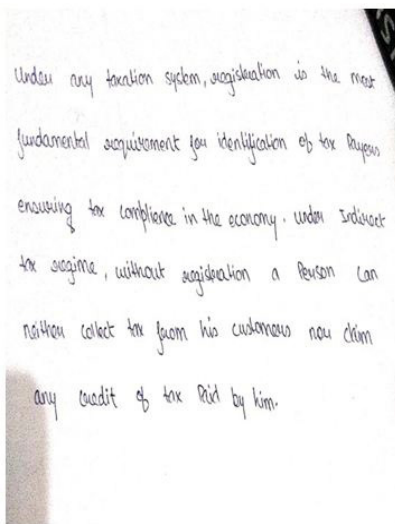 Under any taxation system, registration is the most
fundamental requirement for identification of tax Payers
ensuring tax complience in the economy. under Indirect
tax regime, without registration a Person can
neither collect tax from his customers nor claim
any credit of tax Paid by him.